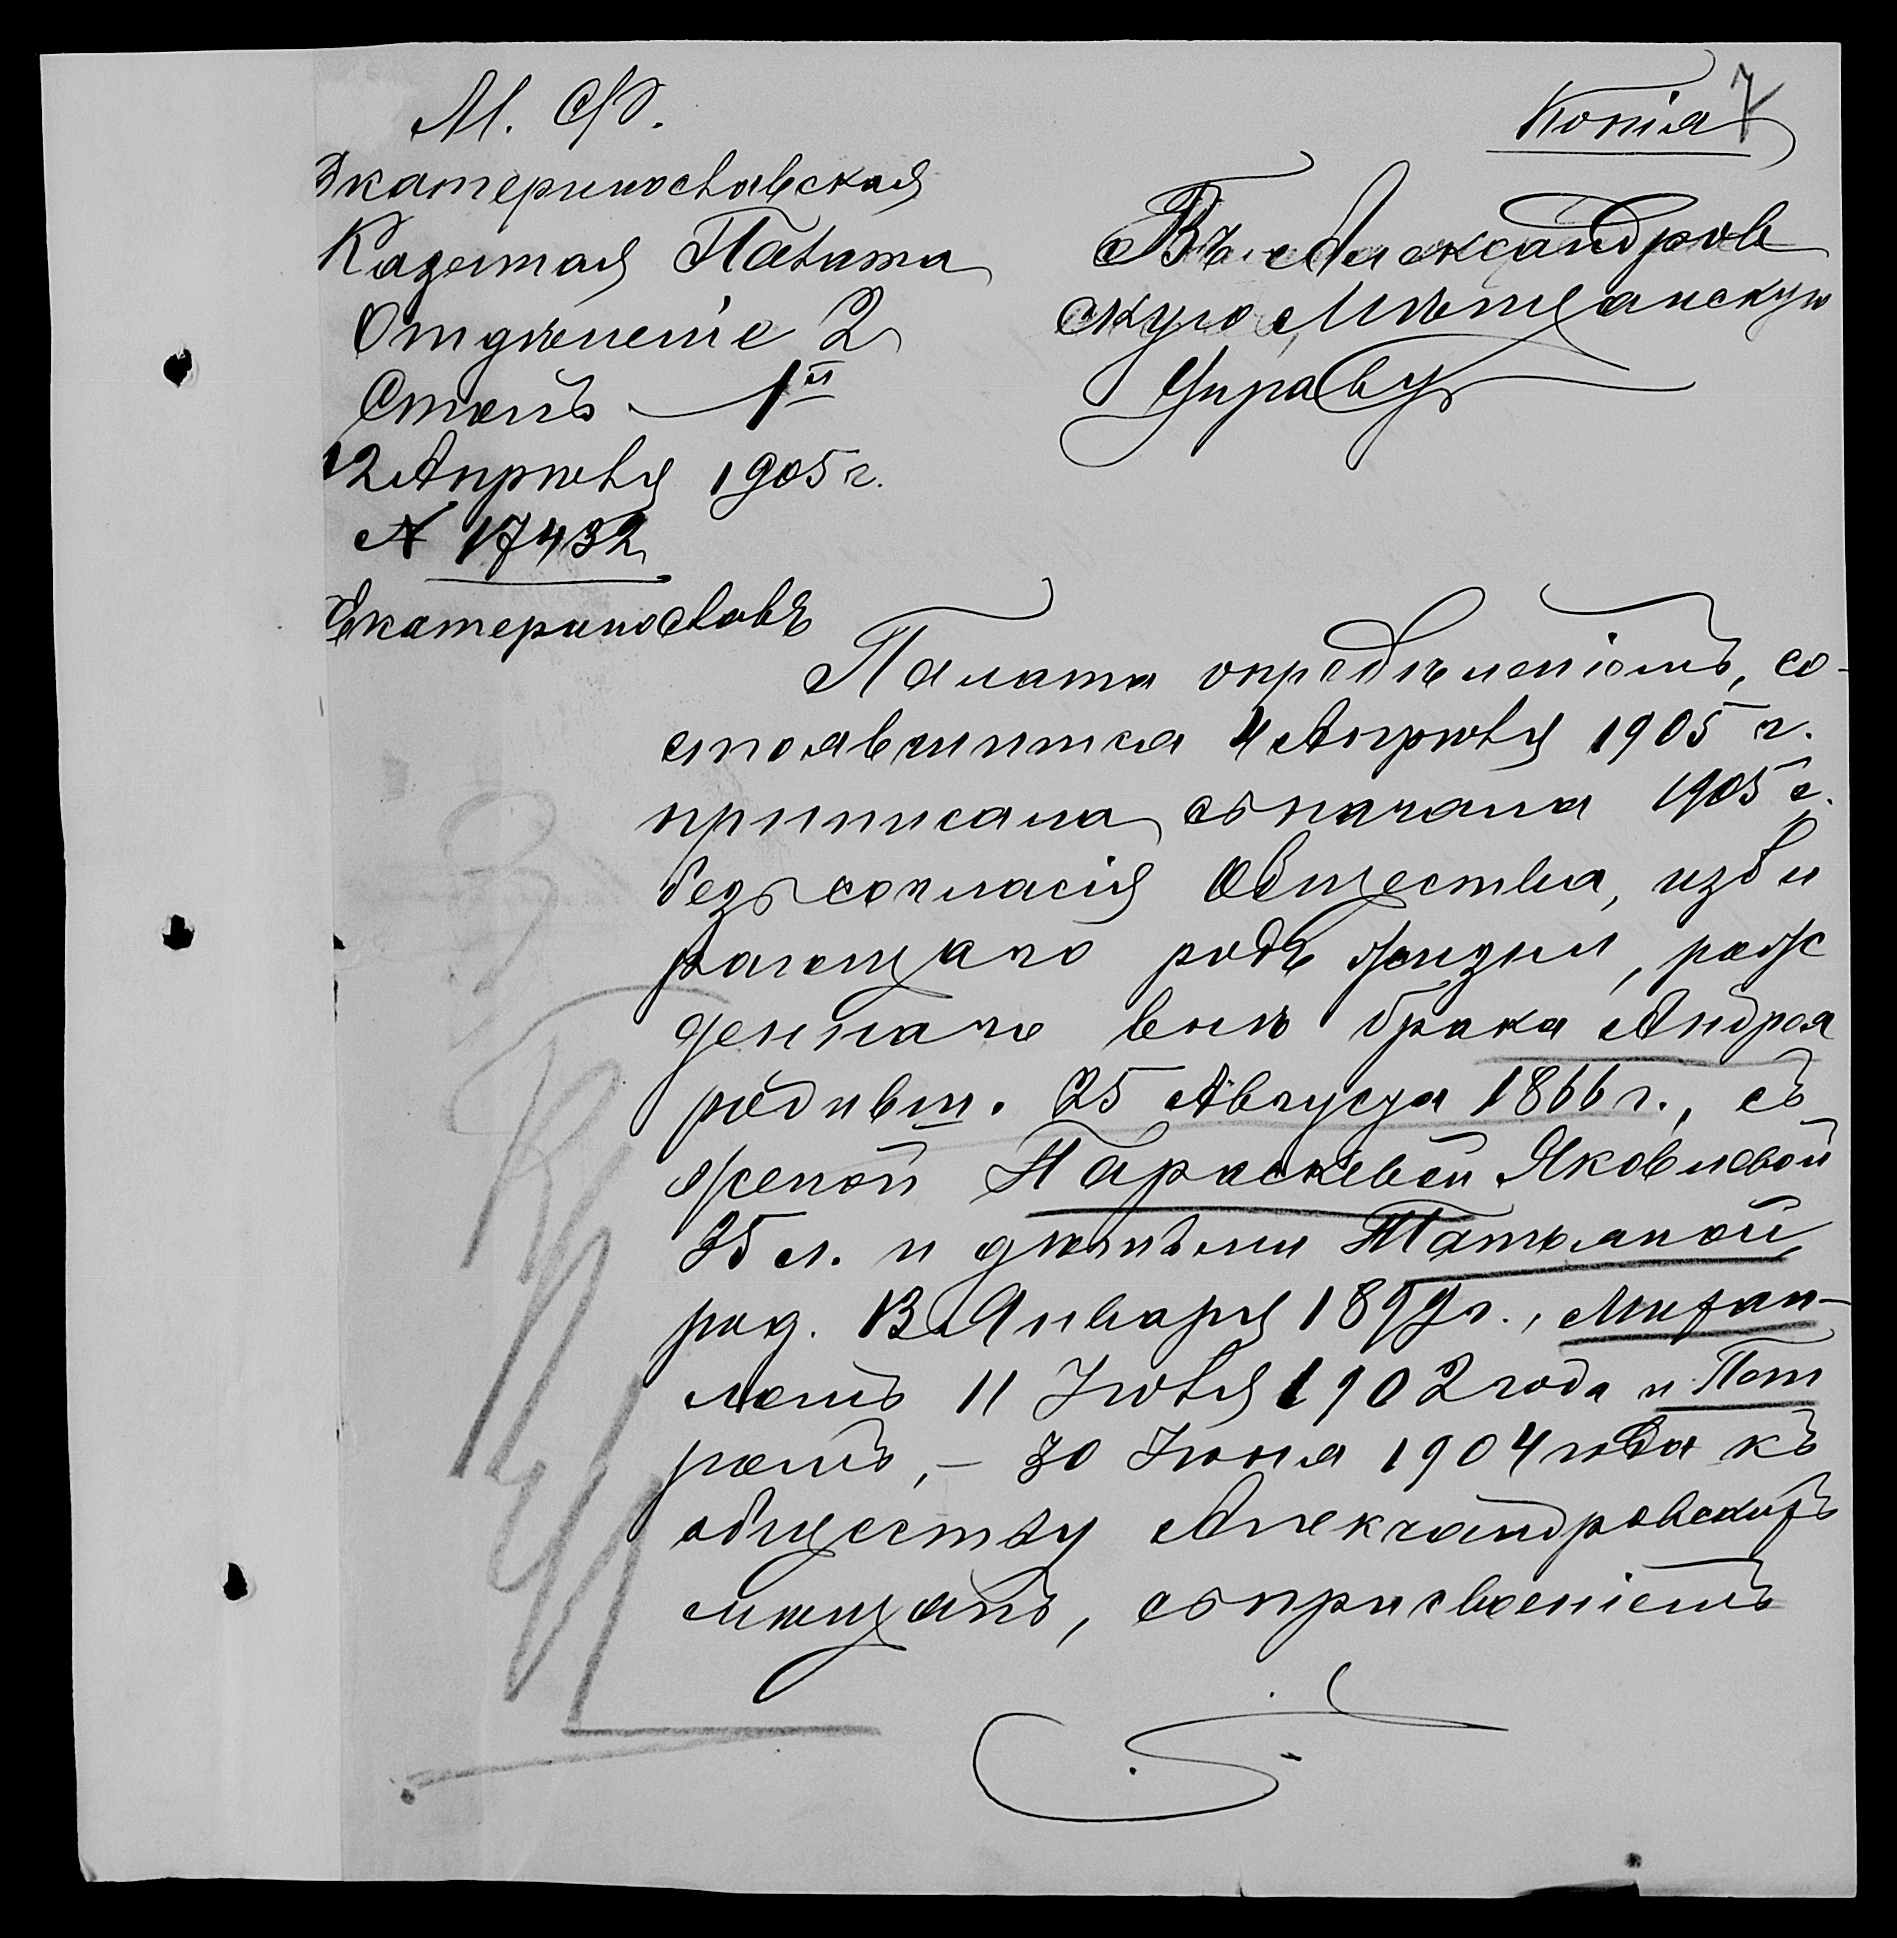 М. Ф.
Копія 7
Екатеринославская
Казенная Палата
Отдѣленіе 2
Столъ 1й
12 Апрѣля 1905 г.
№ 17432
Екатеринославъ
Въ Александров
скую Мѣщанскую
Управу
Палата опредѣленіемъ, со-
стоявшимся 4 Апрѣля 1905 г.
приписала съ начала 1905 г.
безъ согласія Общества, изби
рающаго родъ жизни, рож
деннаго внѣ брака Андрея
родивш. 25 Августа 1866 г., съ
женой Параскевой Яковлевой
35 л. и дѣтьми Татьяной,
род. 13 Января 1899 г., Михаи-
ломъ 11 Іюля 1902 года и Пет
ромъ, - 30 Іюня 1904 года къ
обществу Александровскихъ
мѣщанъ, съ присвоеніемъ